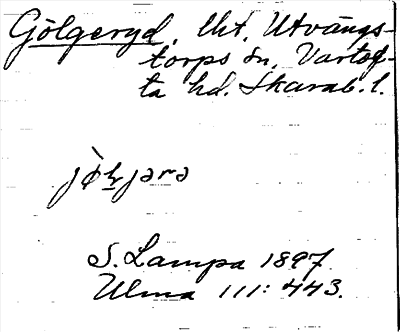 Gölgeryd, lht, Utvängs-
torps sn, Vartof-
ta hd. Skarab. l.
jòhjara
S. Lampa 1897
Ulma 111: 443.